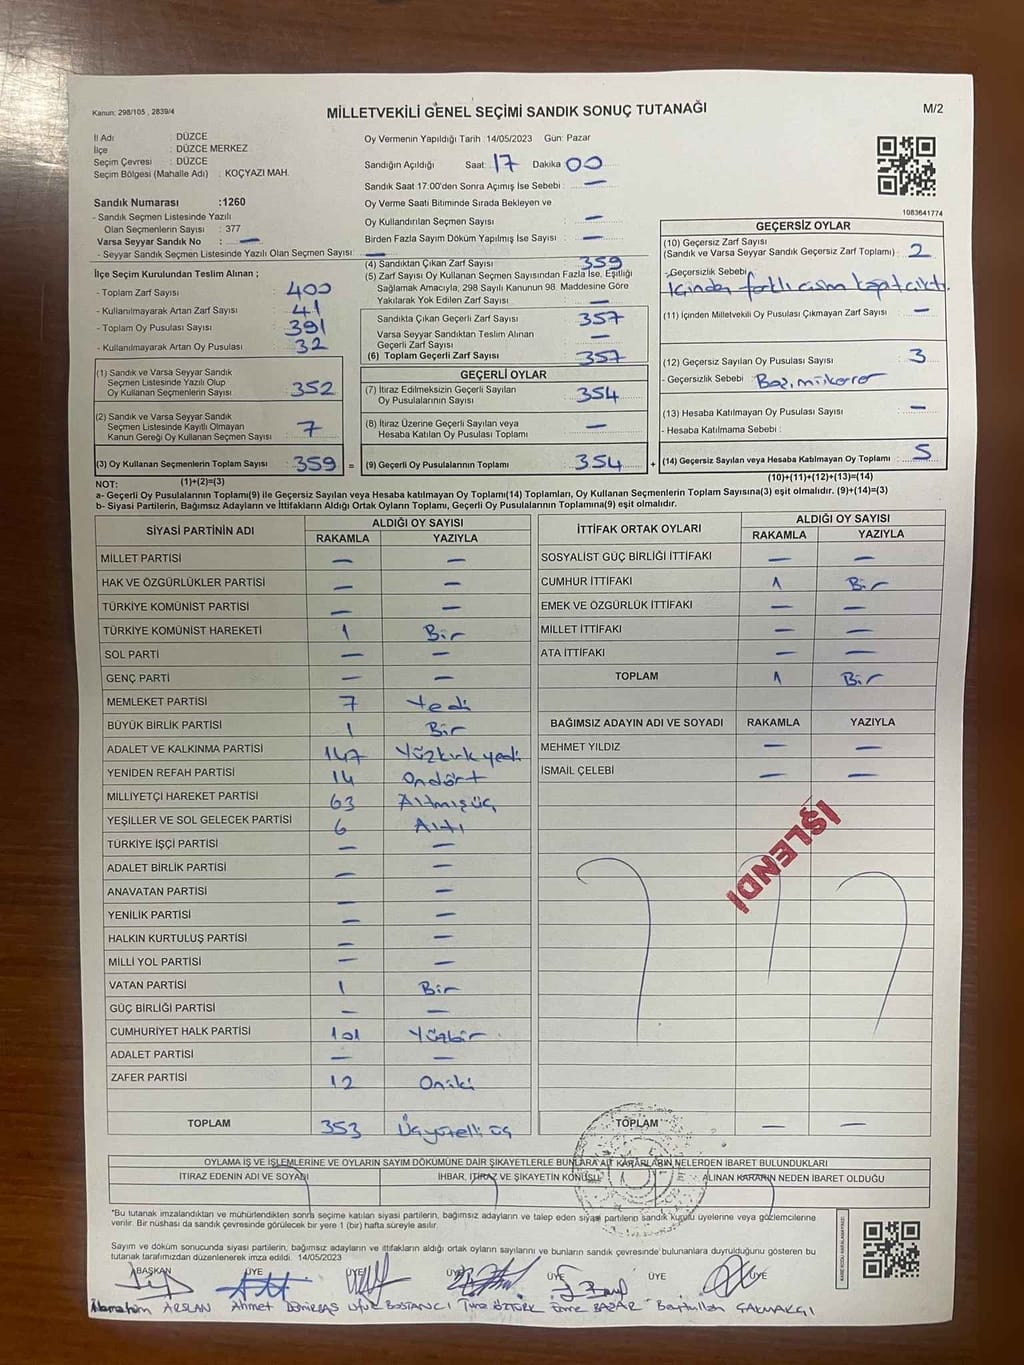 Kanun: 298/105 , 2839/4
MİLLETVEKİLİ GENEL SEÇİMİ SANDIK SONUÇ TUTANAĞI
M/2
İl Adı : DÜZCE
İlçe : DÜZCE MERKEZ
Seçim Çevresi : DÜZCE
Seçim Bölgesi (Mahalle Adı) : KOÇYAZI MAH.
Sandık Numarası :1260
- Sandık Seçmen Listesinde Yazılı
Olan Seçmenlerin Sayısı : 377
Varsa Seyyar Sandık No : —
- Seyyar Sandık Seçmen Listesinde Yazılı Olan Seçmen Sayısı : —
Oy Vermenin Yapıldığı Tarih :14/05/2023 Gün: Pazar
Sandığın Açıldığı Saat: 17 Dakika 00
Sandık Saat 17.00'den Sonra Açımış İse Sebebi : —
Oy Verme Saati Bitiminde Sırada Bekleyen ve
Oy Kullandırılan Seçmen Sayısı : —
Birden Fazla Sayım Döküm Yapılmış İse Sayısı : —
1083641774
İlçe Seçim Kurulundan Teslim Alınan ;
- Toplam Zarf Sayısı : 400
- Kullanılmayarak Artan Zarf Sayısı : 41
- Toplam Oy Pusulası Sayısı : 391
- Kullanılmayarak Artan Oy Pusulası : 32
(1) Sandık ve Varsa Seyyar Sandık
Seçmen Listesinde Yazılı Olup
Oy Kullanan Seçmenlerin Sayısı : 352
(2) Sandık ve Varsa Seyyar Sandık
Seçmen Listesinde Kayıtlı Olmayan
Kanun Gereği Oy Kullanan Seçmen Sayısı : 7
(3) Oy Kullanan Seçmenlerin Toplam Sayısı : 359 =
(1)+(2)=(3)
(4) Sandıktan Çıkan Zarf Sayısı : 359
(5) Zarf Sayısı Oy Kullanan Seçmen Sayısından Fazla İse, Eşitliği
Sağlamak Amacıyla, 298 Sayılı Kanunun 98. Maddesine Göre
Yakılarak Yok Edilen Zarf Sayısı : —
Sandıkta Çıkan Geçerli Zarf Sayısı : 357
Varsa Seyyar Sandıktan Teslim Alınan
Geçerli Zarf Sayısı : —
(6) Toplam Geçerli Zarf Sayısı : 357
GEÇERLİ OYLAR
(7) İtiraz Edilmeksizin Geçerli Sayılan
Oy Pusulalarının Sayısı : 354
(8) İtiraz Üzerine Geçerli Sayılan veya
Hesaba Katılan Oy Pusulası Toplamı : —
(9) Geçerli Oy Pusulalarının Toplamı : 354 +
GEÇERSİZ OYLAR
(10) Geçersiz Zarf Sayısı
(Sandık ve Varsa Seyyar Sandık Geçersiz Zarf Toplamı) : 2
- Geçersizlik Sebebi :
İçinden farklı cisim kağıt çıktı.
(11) İçinden Milletvekili Oy Pusulası Çıkmayan Zarf Sayısı : —
(12) Geçersiz Sayılan Oy Pusulası Sayısı : 3
- Geçersizlik Sebebi :
(13) Hesaba Katılmayan Oy Pusulası Sayısı : —
- Hesaba Katılmama Sebebi :
(14) Geçersiz Sayılan veya Hesaba Katılmayan Oy Toplamı : 5
(10)+(11)+(12)+(13)=(14)
NOT:
a- Geçerli Oy Pusulalarının Toplamı(9) ile Geçersiz Sayılan veya Hesaba katılmayan Oy Toplamı(14) Toplamları, Oy Kullanan Seçmenlerin Toplam Sayısına(3) eşit olmalıdır. (9)+(14)=(3)
b- Siyasi Partilerin, Bağımsız Adayların ve İttifakların Aldığı Ortak Oyların Toplamı, Geçerli Oy Pusulalarının Toplamına(9) eşit olmalıdır.
SİYASİ PARTİNİN ADI ALDIĞI OY SAYISI
RAKAMLA YAZIYLA
MİLLET PARTİSİ — —
HAK VE ÖZGÜRLÜKLER PARTİSİ — —
TÜRKİYE KOMÜNİST PARTİSİ — —
TÜRKİYE KOMÜNİST HAREKETİ 1 Bir
SOL PARTİ — —
GENÇ PARTİ — —
MEMLEKET PARTİSİ 7 Yedi
BÜYÜK BİRLİK PARTİSİ 1 Bir
ADALET VE KALKINMA PARTİSİ 147 Yüzkırkyedi
YENİDEN REFAH PARTİSİ 14 Ondört
MİLLİYETÇİ HAREKET PARTİSİ 63 Altmışüç
YEŞİLLER VE SOL GELECEK PARTİSİ 6 Altı
TÜRKİYE İŞÇİ PARTİSİ — —
ADALET BİRLİK PARTİSİ — —
ANAVATAN PARTİSİ — —
YENİLİK PARTİSİ — —
HALKIN KURTULUŞ PARTİSİ — —
MİLLİ YOL PARTİSİ — —
VATAN PARTİSİ 1 Bir
GÜÇ BİRLİĞİ PARTİSİ — —
CUMHURİYET HALK PARTİSİ 101 Yüzbir
ADALET PARTİSİ — —
ZAFER PARTİSİ 12 Oniki
TOPLAM 353 Üçyüzelliüç
İTTİFAK ORTAK OYLARI ALDIĞI OY SAYISI
RAKAMLA YAZIYLA
SOSYALİST GÜÇ BİRLİĞİ İTTİFAKI — —
CUMHUR İTTİFAKI 1 Bir
EMEK VE ÖZGÜRLÜK İTTİFAKI — —
MİLLET İTTİFAKI — —
ATA İTTİFAKI — —
TOPLAM 1 Bir
BAĞIMSIZ ADAYIN ADI VE SOYADI RAKAMLA YAZIYLA
MEHMET YILDIZ — —
İSMAİL ÇELEBİ — —
İŞLENDİ
TOPLAM — —
OYLAMA İŞ VE İŞLEMLERİNE VE OYLARIN SAYIM DÖKÜMÜNE DAİR ŞİKAYETLERLE BUNLARA AİT KARARLARIN NELERDEN İBARET BULUNDUKLARI
İTİRAZ EDENİN ADI VE SOYADI İHBAR, İTİRAZ VE ŞİKAYETİN KONUSU ALINAN KARARIN NEDEN İBARET OLDUĞU
*Bu tutanak imzalandıktan ve mühürlendikten sonra seçime katılan siyasi partilerin, bağımsız adayların ve talep eden siyasi partilerin sandık kurulu üyelerine veya gözlemcilerine
verilir. Bir nüshası da sandık çevresinde görülecek bir yere 1 (bir) hafta süreyle asılır.
Sayım ve döküm sonucunda siyasi partilerin, bağımsız adayların ve ittifakların aldığı ortak oyların sayılarını ve bunların sandık çevresinde bulunanlara duyrulduğunu gösteren bu
tutanak tarafımızdan düzenlenerek imza edildi. 14/05/2023
BAŞKAN ÜYE ÜYE ÜYE ÜYE ÜYE ÜYE
ARSLAN Ahmet DEMİRBAŞ Ufuk BOSTANCI ÖZTÜRK Emre BAZAR Beytullah ÇAKMAKÇI